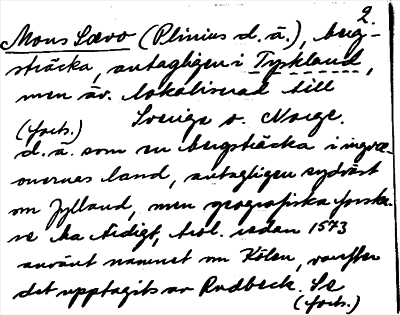 2.
Mons Sævo (Plinius d. ä.), berg-
sträcka, antagligen i Tyskland,
men äv. lokaliserad till
(forts.) Sverige o. Norge.
d. ä. som en bergsträcka i ingvæ-
onernes land, antagligen sydväst
om Jylland, men geografiska forska-
re ha tidigt, trol. redan 1573
använt namnet om Kölen, varefter
det upptagits av Rudbeck. Se
(forts.)